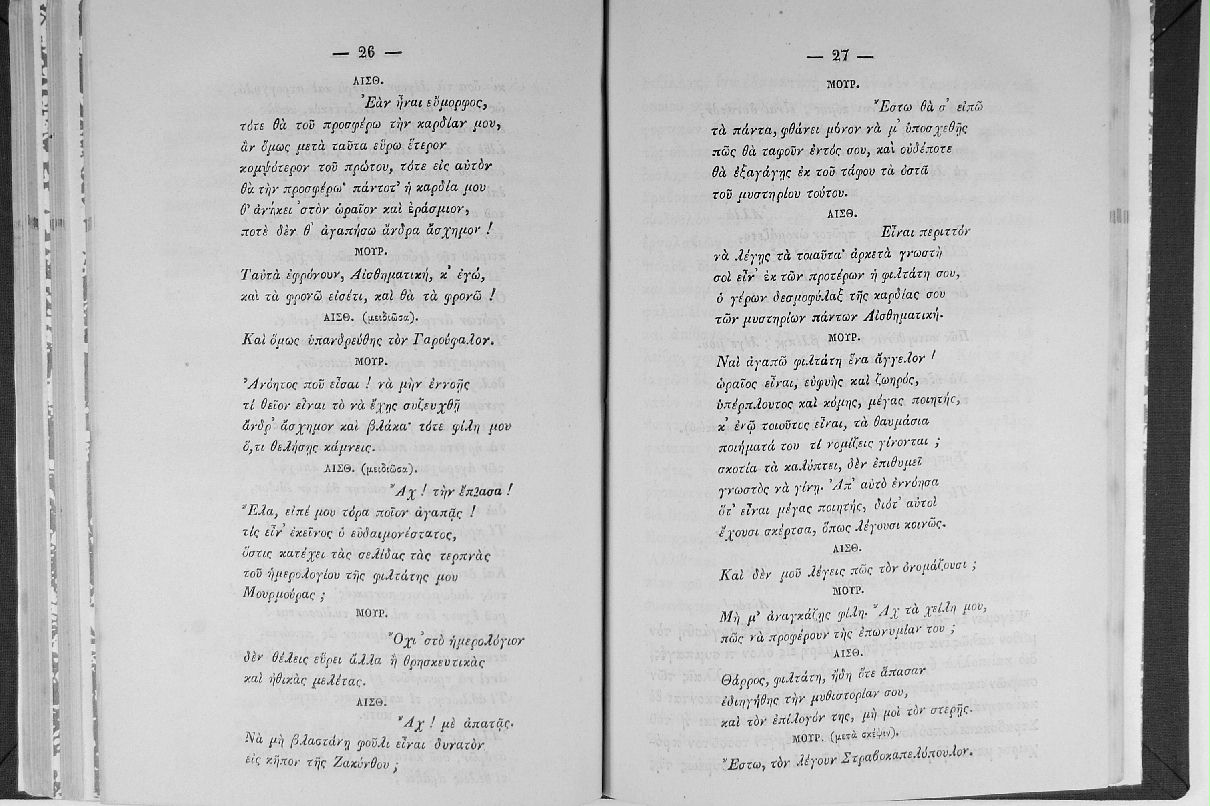 — 26 —
ΑΙΣΘ.
Ἐὰν ἦναι εὔμορφος,
τότε θὰ τοῦ προσφέρω τὴν καρδίαν μου,
ἂν ὅμως μετὰ ταῦτα εὕρω ἕτερον
κομψότερον τοῦ πρώτου, τότε εἰς αὐτὸν
θὰ τὴν προσφέρω· πάντοτ' ἡ καρδία μου
θ' ἀνήκει 'στὸν ὡραῖον καὶ ἐράσμιον,
ποτὲ δὲν θ' ἀγαπήσω ἄνδρα ἄσχημον !
ΜΟΥΡ.
Ταὐτὰ ἐφρόνουν, Αἰσθηματικὴ, κ' ἐγὼ,
καὶ τὰ φρονῶ εἰσέτι, καὶ θὰ τὰ φρονῶ !
ΑΙΣΘ. (μειδιῶσα).
Καὶ ὅμως ὑπανδρεύθης τὸν Γαρούφαλον.
ΜΟΥΡ.
Ἀνόητος ποῦ εἶσαι ! νὰ μὴν ἐννοῇς
τί θεῖον εἶναι τὸ νὰ ἔχῃς συζευχθῆ
ἄνδρ' ἄσχημον καὶ βλάκα· τότε φίλη μου
ὅ,τι θελήσῃς κάμνεις.
ΑΙΣΘ. (μειδιῶσα).
Ἂχ ! τὴν ἔπιασα !
Ἔλα, εἰπέ μου τόρα ποῖον ἀγαπᾷς !
τίς εἶν' ἐκεῖνος ὁ εὐδαιμονέστατος,
ὅστις κατέχει τὰς σελίδας τὰς τερπνὰς
τοῦ ἡμερολογίου τῆς φιλτάτης μου
Μουρμούρας ;
ΜΟΥΡ.
Ὄχι 'στὸ ἡμερολόγιον
δὲν θέλεις εὕρει ἄλλα ἢ θρησκευτικὰς
καὶ ἠθικὰς μελέτας.
ΑΙΣΘ.
Ἂχ ! μὲ ἀπατᾷς.
Νὰ μὴ βλαστάνῃ φοῦλι εἶναι δυνατὸν
εἰς κῆπον τῆς Ζακύνθου ;
— 27 —
ΜΟΥΡ.
Ἔστω θὰ σ' εἰπῶ
τὰ πάντα, φθάνει μόνον νὰ μ' ὑποσχεθῇς
πῶς θὰ ταφοῦν ἐντός σου, καὶ οὐδέποτε
θὰ ἐξαγάγῃς ἐκ τοῦ τάφου τὰ ὀστᾶ
τοῦ μυστηρίου τούτου.
ΑΙΣΘ.
Εἶναι περιττὸν
νὰ λέγῃς τὰ τοιαῦτα· ἀρκετὰ γνωστὴ
σοὶ εἶν' ἐκ τῶν προτέρων ἡ φιλτάτη σου,
ὁ γέρων δεσμοφύλαξ τῆς καρδίας σου
τῶν μυστηρίων πάντων Αἰσθηματική.
ΜΟΥΡ.
Ναὶ ἀγαπῶ φιλτάτη ἕνα ἄγγελον !
ὡραῖος εἶναι, εὐφυὴς καὶ ζωηρός,
ὑπέρπλουτος καὶ κόμης, μέγας ποιητής,
κ' ἐνῷ τοιοῦτος εἶναι, τὰ θαυμάσια
ποιήματά του τί νομίζεις γίνονται ;
σκοτία τὰ καλύπτει, δὲν ἐπιθυμεῖ
γνωστὸς νὰ γίνῃ. Ἀπ' αὐτὸ ἐννόησα
ὅτ' εἶναι μέγας ποιητής, διότ' αὐτοὶ
ἔχουσι σκέρτσα, ὅπως λέγουσι κοινῶς.
ΑΙΣΘ.
Καὶ δὲν μοῦ λέγεις πῶς τὸν ὀνομάζουσι ;
ΜΟΥΡ.
Μὴ μ' ἀναγκάζῃς φίλη. Ἂχ τὰ χείλη μου,
πῶς νὰ προφέρουν τὴς ἐπωνυμίαν του ;
ΑΙΣΘ.
Θάρρος, φιλτάτη, ἤδη ὅτε ἅπασαν
ἐδιηγήθης τὴν μυθιστορίαν σου,
καὶ τὸν ἐπίλογόν της, μή μοι τὸν στερῇς.
ΜΟΥΡ. (μετὰ σκέψιν).
Ἔστω, τὸν λέγουν Στραβοκαπελόπουλον.